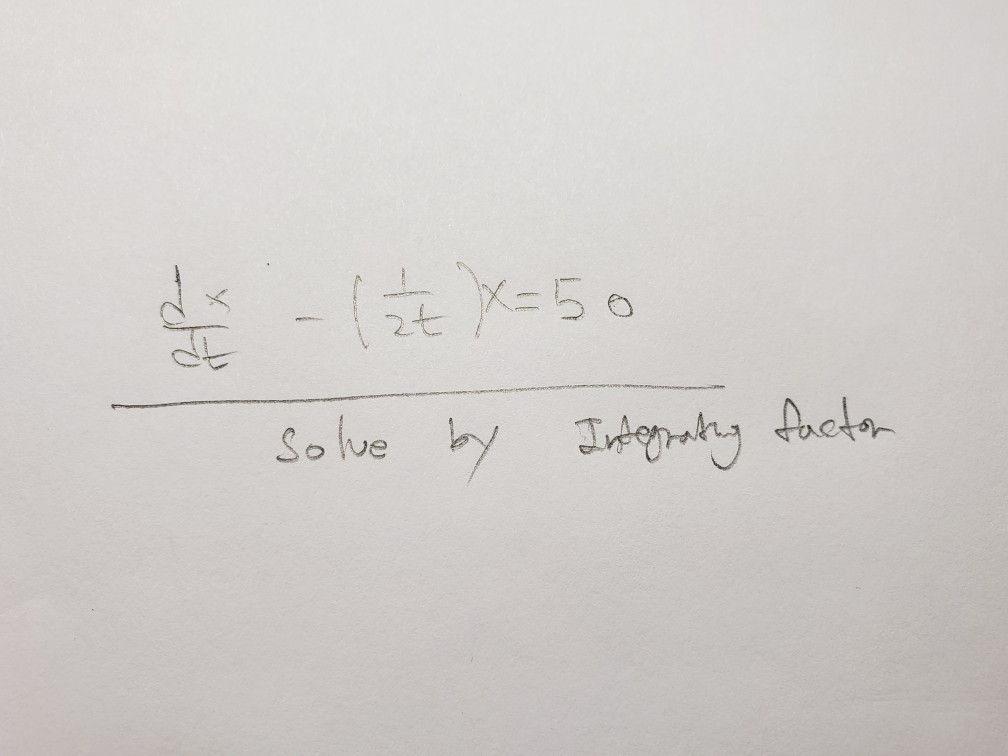 dx/dt - (1/2t)x = 50
Solve by Integrating factor